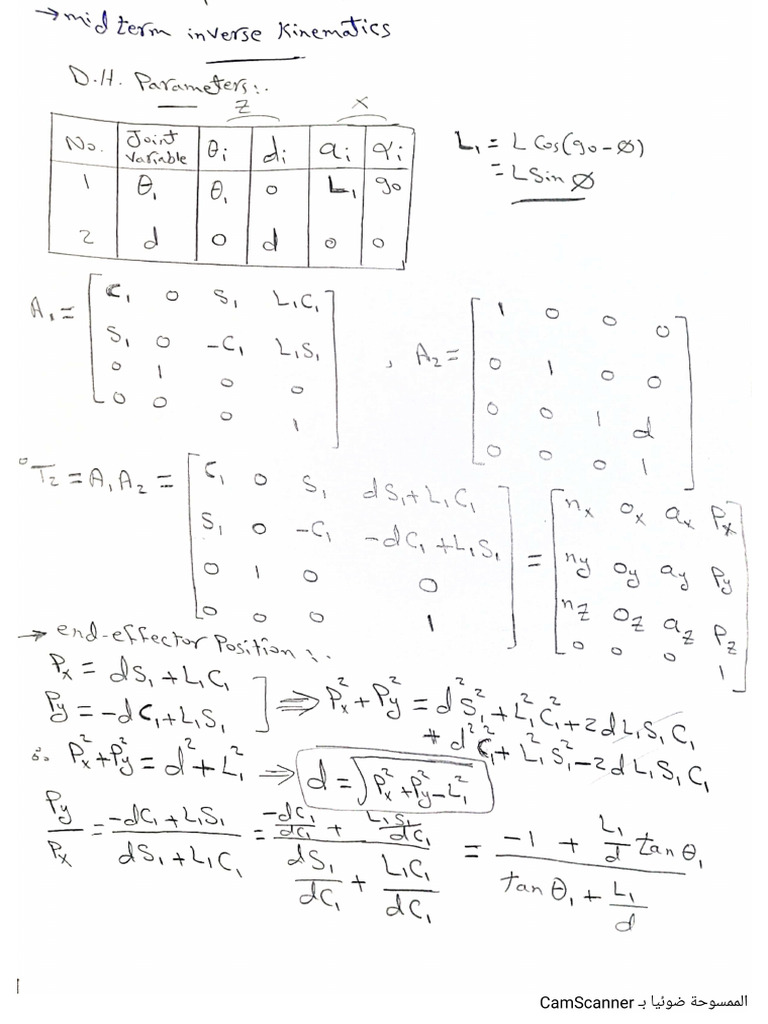 → mid term inverse Kinematics
D.H. Parameters:.
Z X
No. Joint Variable θi di ai αi
1 θ₁ θ₁ 0 L₁ 90
2 d 0 d 0 0
L₁ = L Cos(90-Ø)
= L Sin Ø
A₁ = [ C₁ 0 S₁ L₁C₁
S₁ 0 -C₁ L₁S₁
0 1 0 0
0 0 0 1 ]
, A₂ = [ 1 0 0 0
0 1 0 0
0 0 1 d
0 0 0 1 ]
⁰T₂ = A₁A₂ = [ C₁ 0 S₁ dS₁+L₁C₁
S₁ 0 -C₁ -dC₁+L₁S₁
0 1 0 0
0 0 0 1 ]
= [ nx ox ax Px
ny oy ay Py
nz oz az Pz
0 0 0 1 ]
→ end-effector Position:.
Px = dS₁+L₁C₁
Py = -dC₁+L₁S₁ ] ⇒ Px²+Py² = d²S₁²+L₁²C₁²+2dL₁S₁C₁
+ d²C₁²+L₁²S₁²-2dL₁S₁C₁
∴ Px²+Py² = d²+L₁² ⇒ d = √(Px²+Py²-L₁²)
Py/Px = (-dC₁+L₁S₁)/(dS₁+L₁C₁) = (-dC₁/dC₁ + L₁S₁/dC₁)/(dS₁/dC₁ + L₁C₁/dC₁) = (-1 + L₁/d tan θ₁)/(tan θ₁ + L₁/d)
1
الممسوحة ضوئيا بـ CamScanner